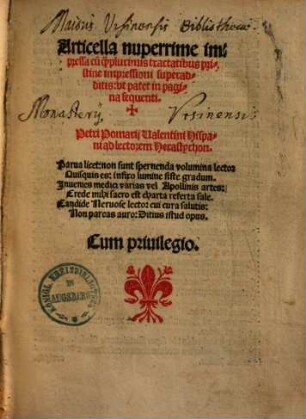 Maioris Vrsinensis Bibliothecae
Articella nuperrime im
pressa cū q̄plurimis tractatibus pri
stine impressioni superad
ditis: vt patet in pagi
na sequenti.
Monasterij Vrsinensis
Petri Pomarij Valentini Hispa
ni ad lectorem Hexastychon.
Parua licet: non sunt spernenda volumina lector
Quisquis es: infixo lumine siste gradum.
Inuenies medici varias vel Apollinis artes:
Crede mihi sacro est charta referta sale.
Candide Neruose lector eū cura salutis:
Non pareas auro: Ditius istud opus.
Cum priuilegio.
KÖNIGL. KREISBIBLIOTHEK
IN
AUGSBURG